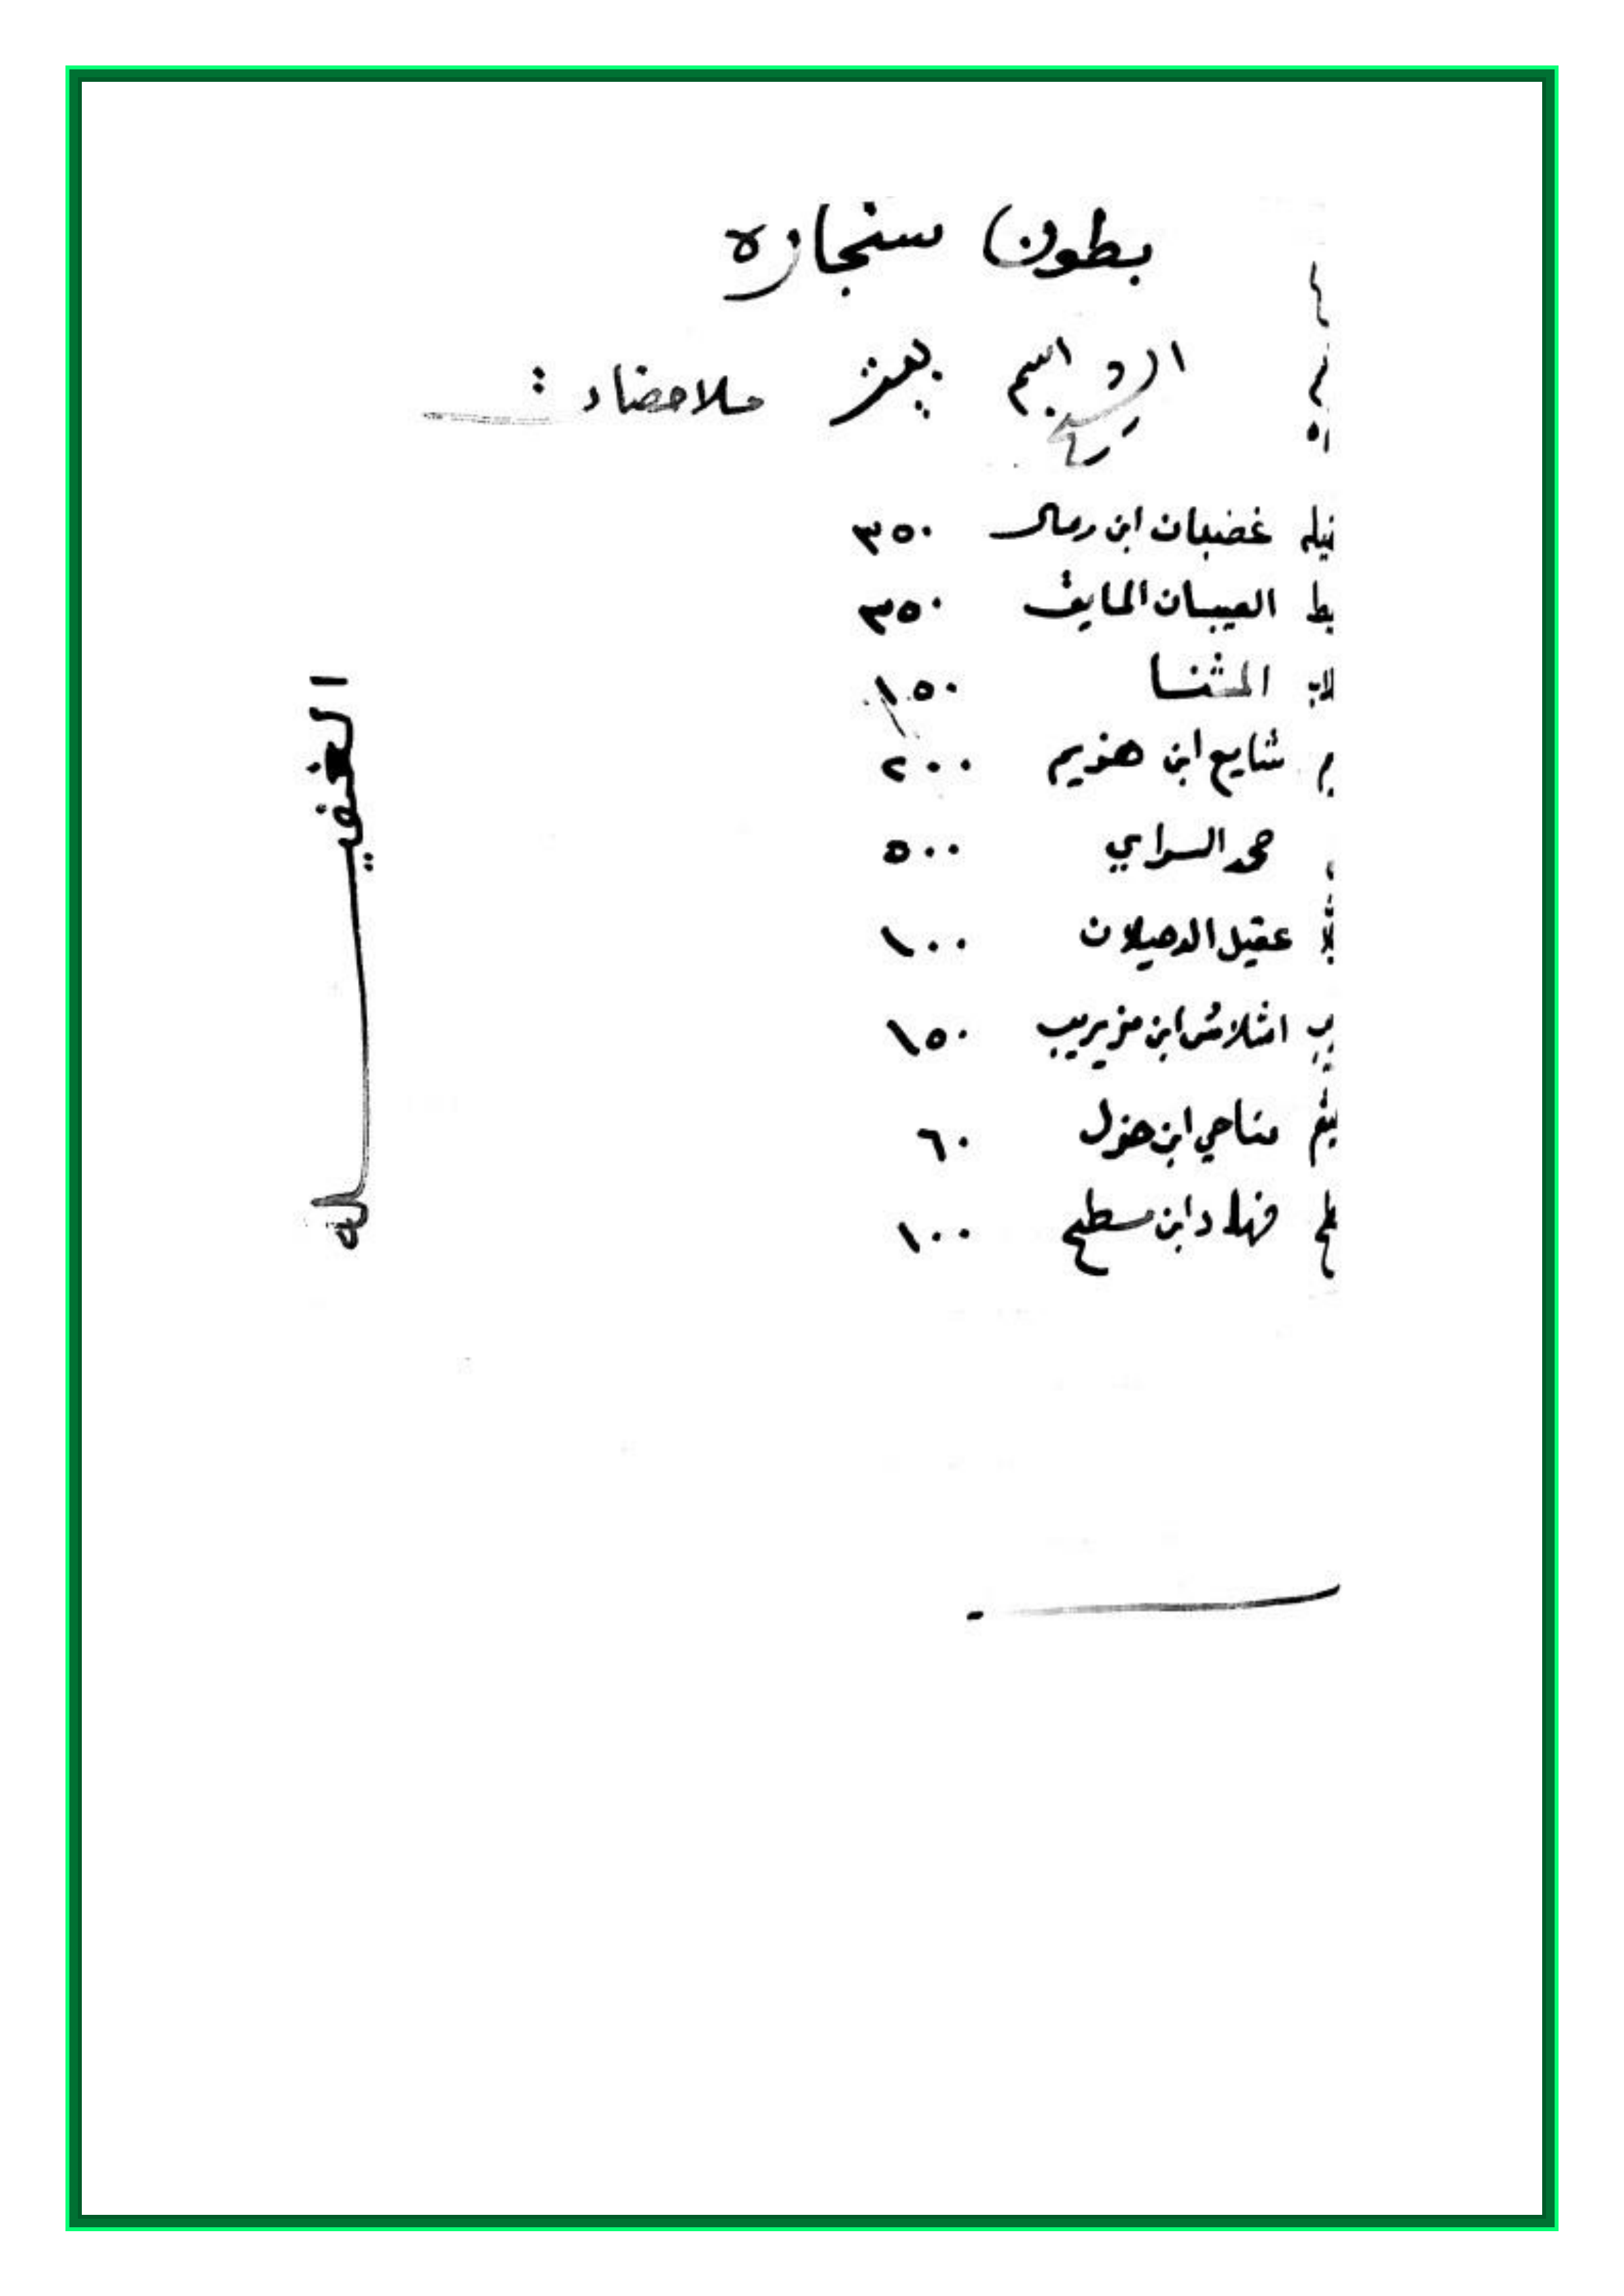 بطون سنجاره
اسم
ملاحضاد :
غضبان ابن رمال ٣٥٠
العيبان المايق ٣٥٠
المثنا ١٥٠
شايع ابن هذيم ٢٠٠
حمد السراي ٥٠٠
عقيل الدهيلان ١٠٠
اشلاش ابن مزيريب ١٥٠
مناحي ابن هزل ٦٠
فهاد ابن مسطح ١٠٠
الغفيله